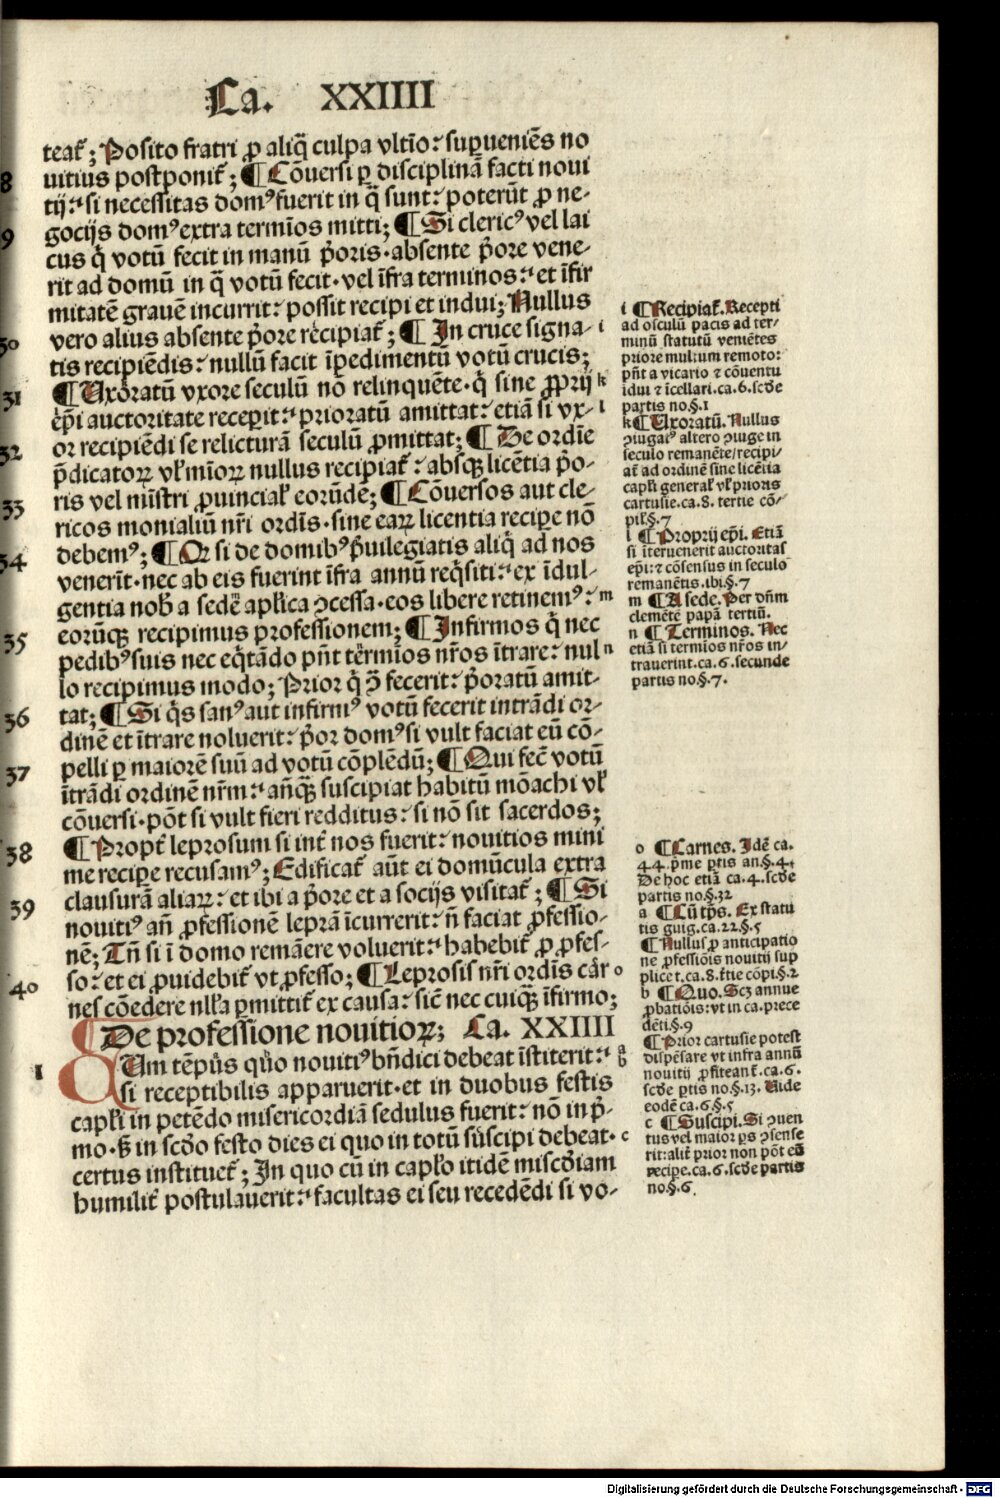 Ca. XXIIII
teat᷑; Posito fratri ꝓ aliq̄ culpa vltīo: suꝑueniēs no
8 uitius postponit᷑; ¶ Cōuersi ꝑ disciplinā facti noui
tij: si necessitas domꝰ fuerit in q̄ sunt: poterūt ꝓ ne-
9 gocijs domꝰ extra termīos mitti; ¶ Si clericꝰ vel lai
cus q̄ votū fecit in manū p̄oris. absente p̄ore vene-
rit ad domū in q̄ votū fecit. vel īfra terminos: et īfir
mitatē grauē incurrit: possit recipi et indui; Nullus
30 vero alius absente p̄ore recipiat᷑; ¶ In cruce signa- i
tis recipiēdis: nullū facit īpedimentū votū crucis;
31 ¶ Uxoratū vxore seculū nō relinquēte. q̄ sine ꝓprij k
ēpi auctoritate receꝑit: prioratū amittat: etiā si vx- l
32 or recipiēdi se relicturā seculū ꝓmittat; ¶ De ordīe
p̄dicatoꝝ vl̓ mīoꝝ nullus recipiat᷑: absqꝫ licētia p̄o-
33 ris vel mīstri ꝓuincial̓ eorūdē; ¶ Cōuersos aut cle-
ricos monialiū nr̄i ordīs. sine eaꝝ licentia reciꝑe nō
34 debemꝰ; ¶ Qr si de domibꝰ p̄uilegiatis aliq̄ ad nos
venerīt. nec ab eis fuerint īfra annū req̄siti: ex īdul-
gentia nob̄ a sede apl̓ica ꝯcessa. eos libere retinemꝰ: m
35 eorūqꝫ recipimus professionem; ¶ Infirmos q̄ nec
pedibꝰ suis nec eq̄tādo pn̄t termīos nr̄os ītrare: nul n
lo recipimus modo; Prior q̄ ꝯ̄ fecerit: p̄oratū amit-
36 tat; ¶ Si q̄s sanꝰ aut infirmꝰ votū fecerit intrādi or-
dinē et ītrare noluerit: p̄or domꝰ si vult faciat eū cō-
37 pelli ꝑ maiorē suū ad votū cōplēdū; ¶ Qui fec̄ votū
ītrādi ordinē nr̄m: an̄qꝫ suscipiat habitū mōachi vl̓
cōuersi. pōt si vult fieri redditus: si nō sit sacerdos;
38 ¶ Propt᷑ leprosum si int᷑ nos fuerit: nouitios mini
me reciꝑe recusamꝰ; Edificat᷑ aūt ei domūcula extra
39 clausurā aliaꝝ: et ibi a p̄ore et a socijs visitat᷑; ¶ Si
nouitiꝰ an̄ ꝓfessionē leprā īcurrerit: n̄ faciat ꝓfessio-
nē; Tn̄ si ī domo remāere voluerit: habebit᷑ ꝓ ꝓfes-
40 so: et ei ꝓuidebit᷑ vt ꝓfesso; ¶ Leprosis nr̄i ordīs car o
nes cōedere nll̓a ꝑmittit᷑ ex causa: sic̄ nec cuiqꝫ īfirmo;
De professione nouitioꝝ; Ca. XXIIII
1 CUm tēpus quo nouitiꝰ bn̄dici debeat īstiterit: a b
si receptibilis apparuerit. et in duobus festis
capl̓i in petēdo misericordiā sedulus fuerit: nō in p̄-
mo. sꝫ in scd̄o festo dies ei quo in totū suscipi debeat. c
certus instituet᷑; In quo cū in capl̓o itidē misc̄diam
humilit᷑ postulauerit: facultas ei seu recedēdi si vo-
i ¶ Recipiat᷑. Recepti
ad osculū pacis ad ter-
minū statutū veniētes
priore multum remoto:
pn̄t a vicario ⁊ cōuentu
īdui ⁊ īcellari. ca. 6. scd̄e
partis no. §. 1
k ¶ Uxoratū. Nullus
ꝯiugat᷑ altero ꝯiuge in
seculo remanēte/ recipi/
at᷑ ad ordinē sine licētia
capl̓i general̓ vl̓ prioris
cartusie. ca. 8. tertie cō-
pil̓. §. 7
l ¶ Proprij ep̄i. Etiā
si īteruenerit auctoritas
ep̄i: ⁊ cōsensus in seculo
remanētis. ibi. §. 7
m ¶ A sede. Per dn̄m
clemētē papā tertiū.
n ¶ Terminos. Nec
etiā si termīos nr̄os in/
trauerint. ca. 6. secunde
partis no. §. 7.
o ¶ Carnes. Idē ca.
44. prime ꝑtis an. §. 4.
De hoc etiā ca. 4. scd̄e
partis no. §. 32
a ¶ Cū tꝑs. Ex statu
tis guig. ca. 22. §. 5
¶ Nullus ꝓ anticipatio
ne ꝓfessiōis nouitij sup
plicet. ca. 8. t᷑tie cōpi. §. 2
b ¶ Quo. Scꝫ annue
ꝓbatiōis: vt in ca. prece
dēti. §. 9
¶ Prior cartusie potest
dispēsare vt infra annū
nouitij ꝓfiteant᷑. ca. 6.
scd̄e ꝑtis no. §. 13. Uide
eodē ca. 6. §. 5
c ¶ Suscipi. Si ꝯuen
tus vel maior ꝑs ꝯsense
rit: alit᷑ prior non pōt eū
recipe. ca. 6. scd̄e partis
no. §. 6.
Digitalisierung gefördert durch die Deutsche Forschungsgemeinschaft - DFG